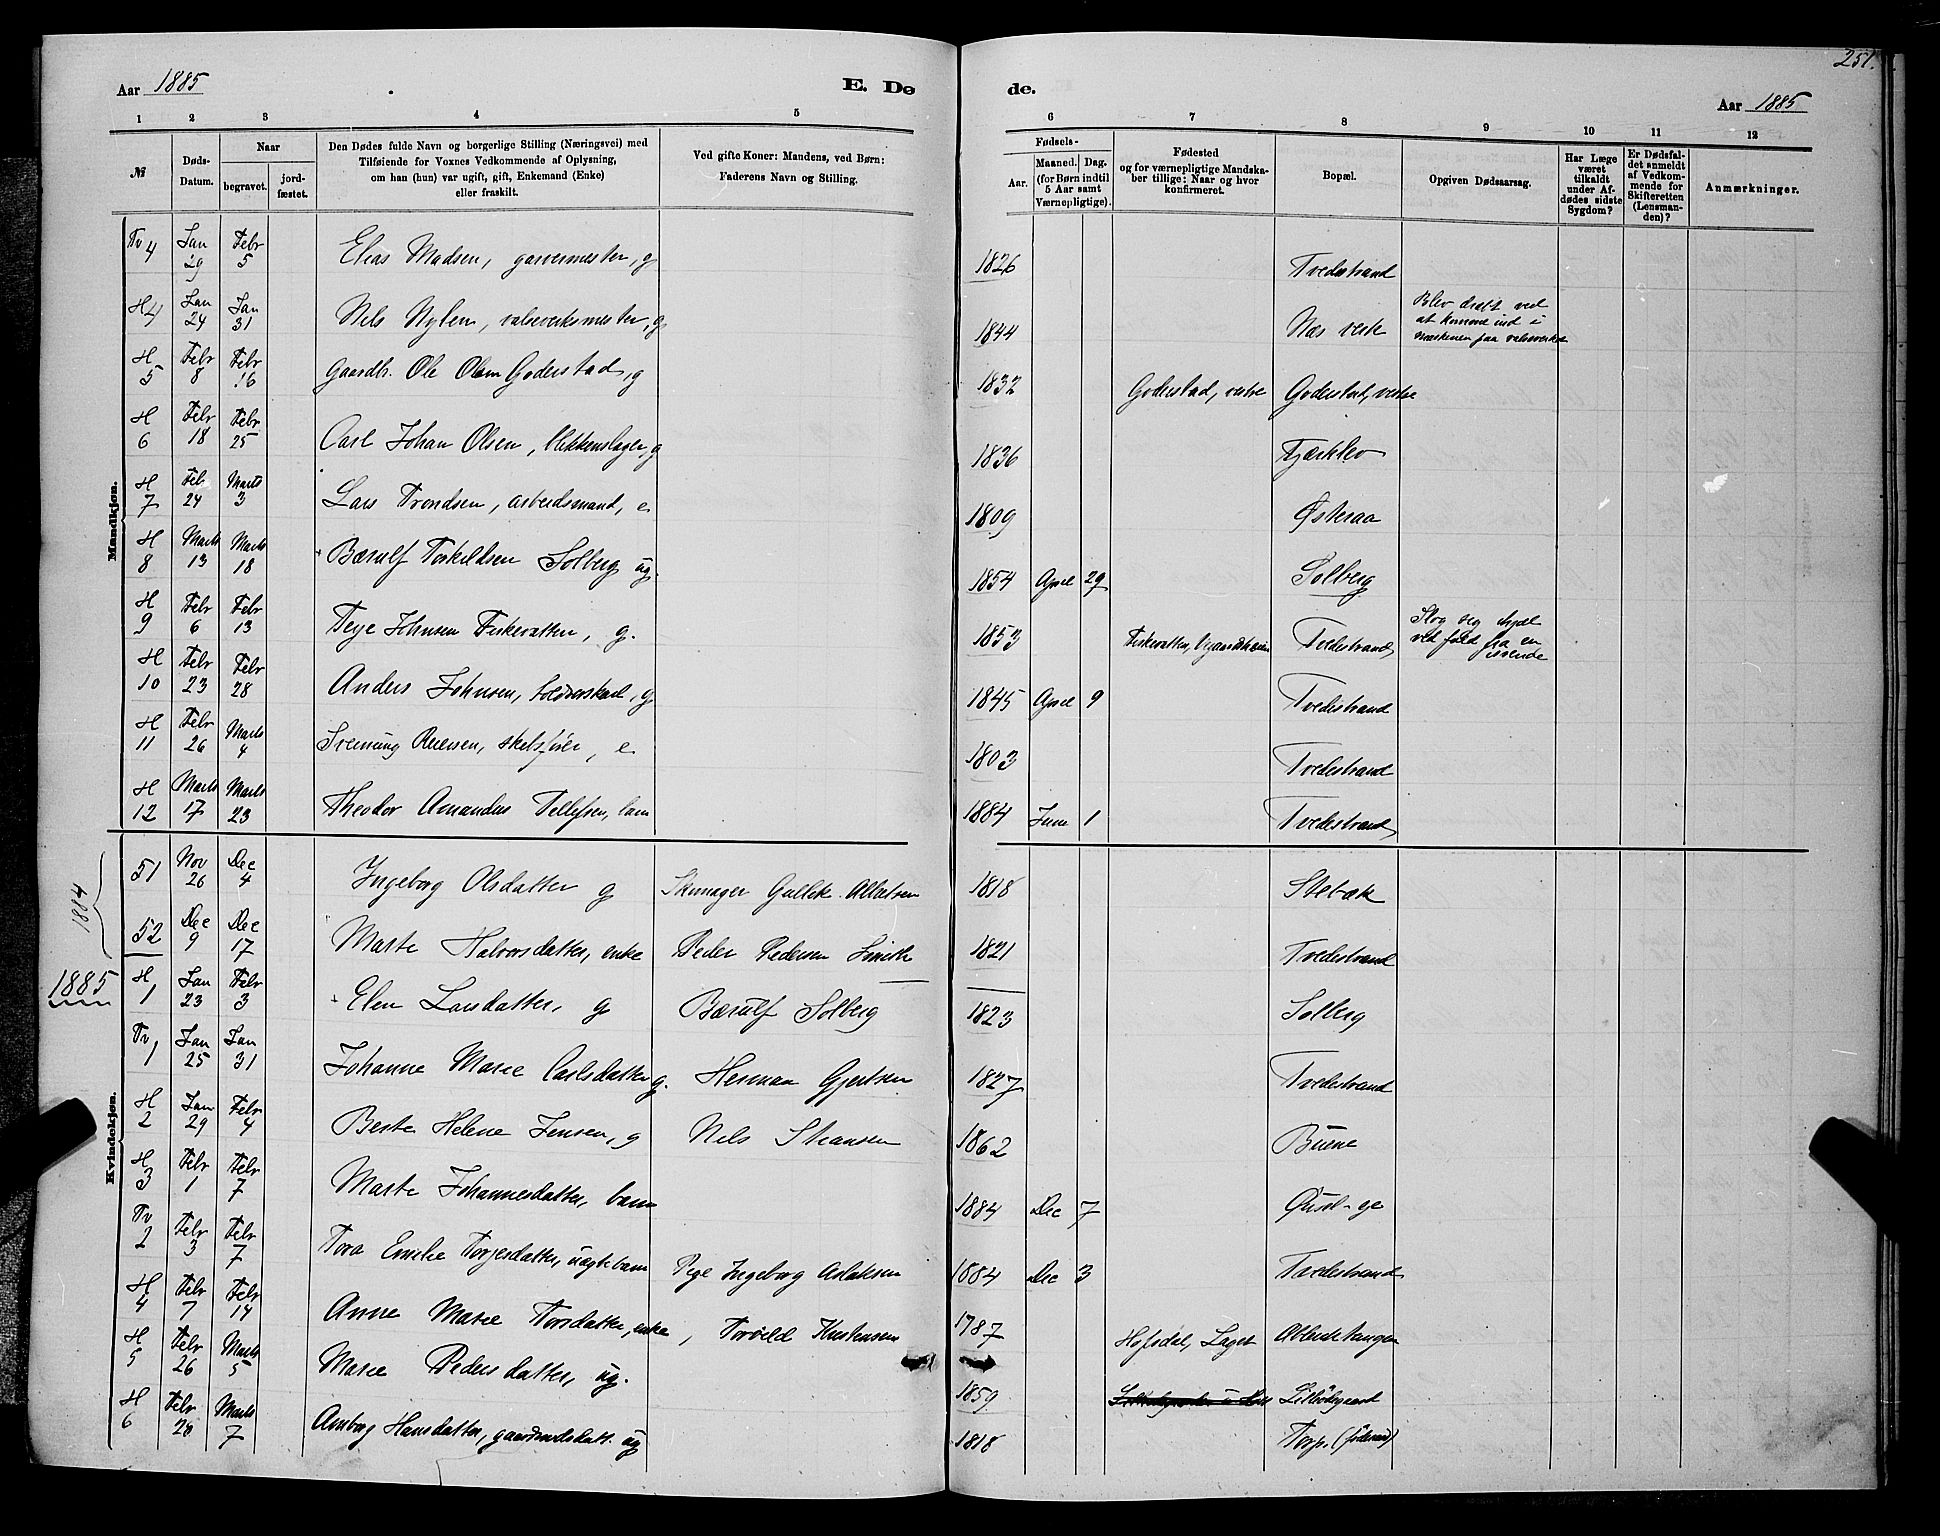 251.
Aar 1885 E. Dø de. Aar 1885
1 2 3 4 5 6 7 8 9 10 11 12
№
Døds-Datum.
Naar
begravet.
jord-fæstet.
Den Dødes fulde Navn og borgerlige Stilling (Næringsvei) med
Tilføiende for Voxnes Vedkommende af Oplysning,
om han (hun) var ugift, gift, Enkemand (Enke)
eller fraskilt.
Ved gifte Koner: Mandens, ved Børn:
Faderens Navn og Stilling.
Fødsels-
Aar.
Maaned. Dag.
(for Børn indtil
5 Aar samt
Værnepligtige).
Fødested
og for værnepligtige Mandska-
ber tillige: Naar og hvor
konfirmeret.
Bopæl.
Opgiven Dødsaarsag.
Har Læge
været
tilkaldt
under Af-
dødes sidste
Sygdom?
Er Dødsfal-
det anmeldt
af Vedkom-
mende for
Skifteretten
(Lensman-
den)?
Anmærkninger.
Mandkjøn.
Tv 4 Jan 29 Febr 5 Elias Madsen, garvermester, g 1826 Tvedestrand
H 4 Jan 24 Jan 31 Nils Nylen, valseverksmester, g 1844 Næs verk Blev dræbt ved
at komme ind i
maskinen paa valseverket
H 5 Febr 8 Febr 16 Gaardb. Ole Olsen Goderstad, g 1832 Goderstad, vestre Goderstad, vestre
H 6 Febr 18 Febr 25 Carl Johan Olsen, blikkenslager, g 1836 Fjærkleo
H 7 Feb 24 Marts 3 Lars Trondsen, arbeidsmand, e 1809 Østeraa
H 8 Marts 13 Marts 18 Bærulf Torkildsen Solberg ug. 1854 April 29 Solberg
H 9 Febr 6 Febr 13 Terje Johnsen Fiskevatten, g. 1853 Fiskevatten, Tvedestrand Slog sig ihjel
ved fald fra en
H 10 Febr 23 Febr 28 Anders Johnsen, g 1845 April 9 Tvedestrand
H 11 Febr 26 Marts 4 Svenung Reiersen, e 1803 Tvedestrand
H 12 Marts 17 Marts 23 Theodor Amandus Tellefsen, barn 1884 Juni 1 Tvedestrand
Kvindekjøn.
1884
51 Nov 26 Dec 4 Ingeborg Olsdatter g Skomager Gullik 1818 Stebæk
52 Dec 9 Dec 17 Marte Halvorsdatter, enke Peder Pedersen Smith 1821 Tvedestrand
1885
H 1 Jan 23 Febr 3 Elen Larsdatter, g Bærulf Solberg 1823 Solberg
Tv 1 Jan 25 Jan 31 Johanne Marie Carlsdatter g. Herman Gjertsen 1827 Tvedestrand
H 2 Jan 29 Febr 4 Berte Helene Jensen, g Nils Steansen 1862 Buene
H 3 Febr 1 Febr 7 Marte Johannesdatter, barn 1884 Dec 7
Tv 2 Febr 3 Febr 7 Tora Emilie Torjesdatter, uægte barn Pige Ingeborg Aslaksen 1884 Dec 3 Tvedestrand
H 4 Febr 7 Febr 14 Anne Marie Torsdatter, enke, Torvild Kristensen 1787 Laget
H 5 Febr 26 Marts 5 Marie Pedersdatter, ug. 1859
H 6 Febr 28 Marts 7 Amborg Hansdatter, ug 1818 Torp.